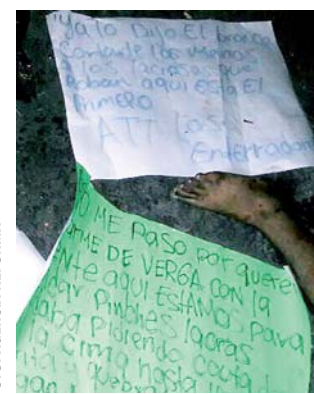 Ya lo Dijo El bronco
Cortarle las manos
A los lacrosos que
Roban aqui Esta El
Primero
ATT Los
Enterrador
O ME Paso por querer
ME DE VERGA CON la
nte aqui ESTAMOS PARA
dar Pinches lacras
aba Pidiendo couta d
la Cima hasta